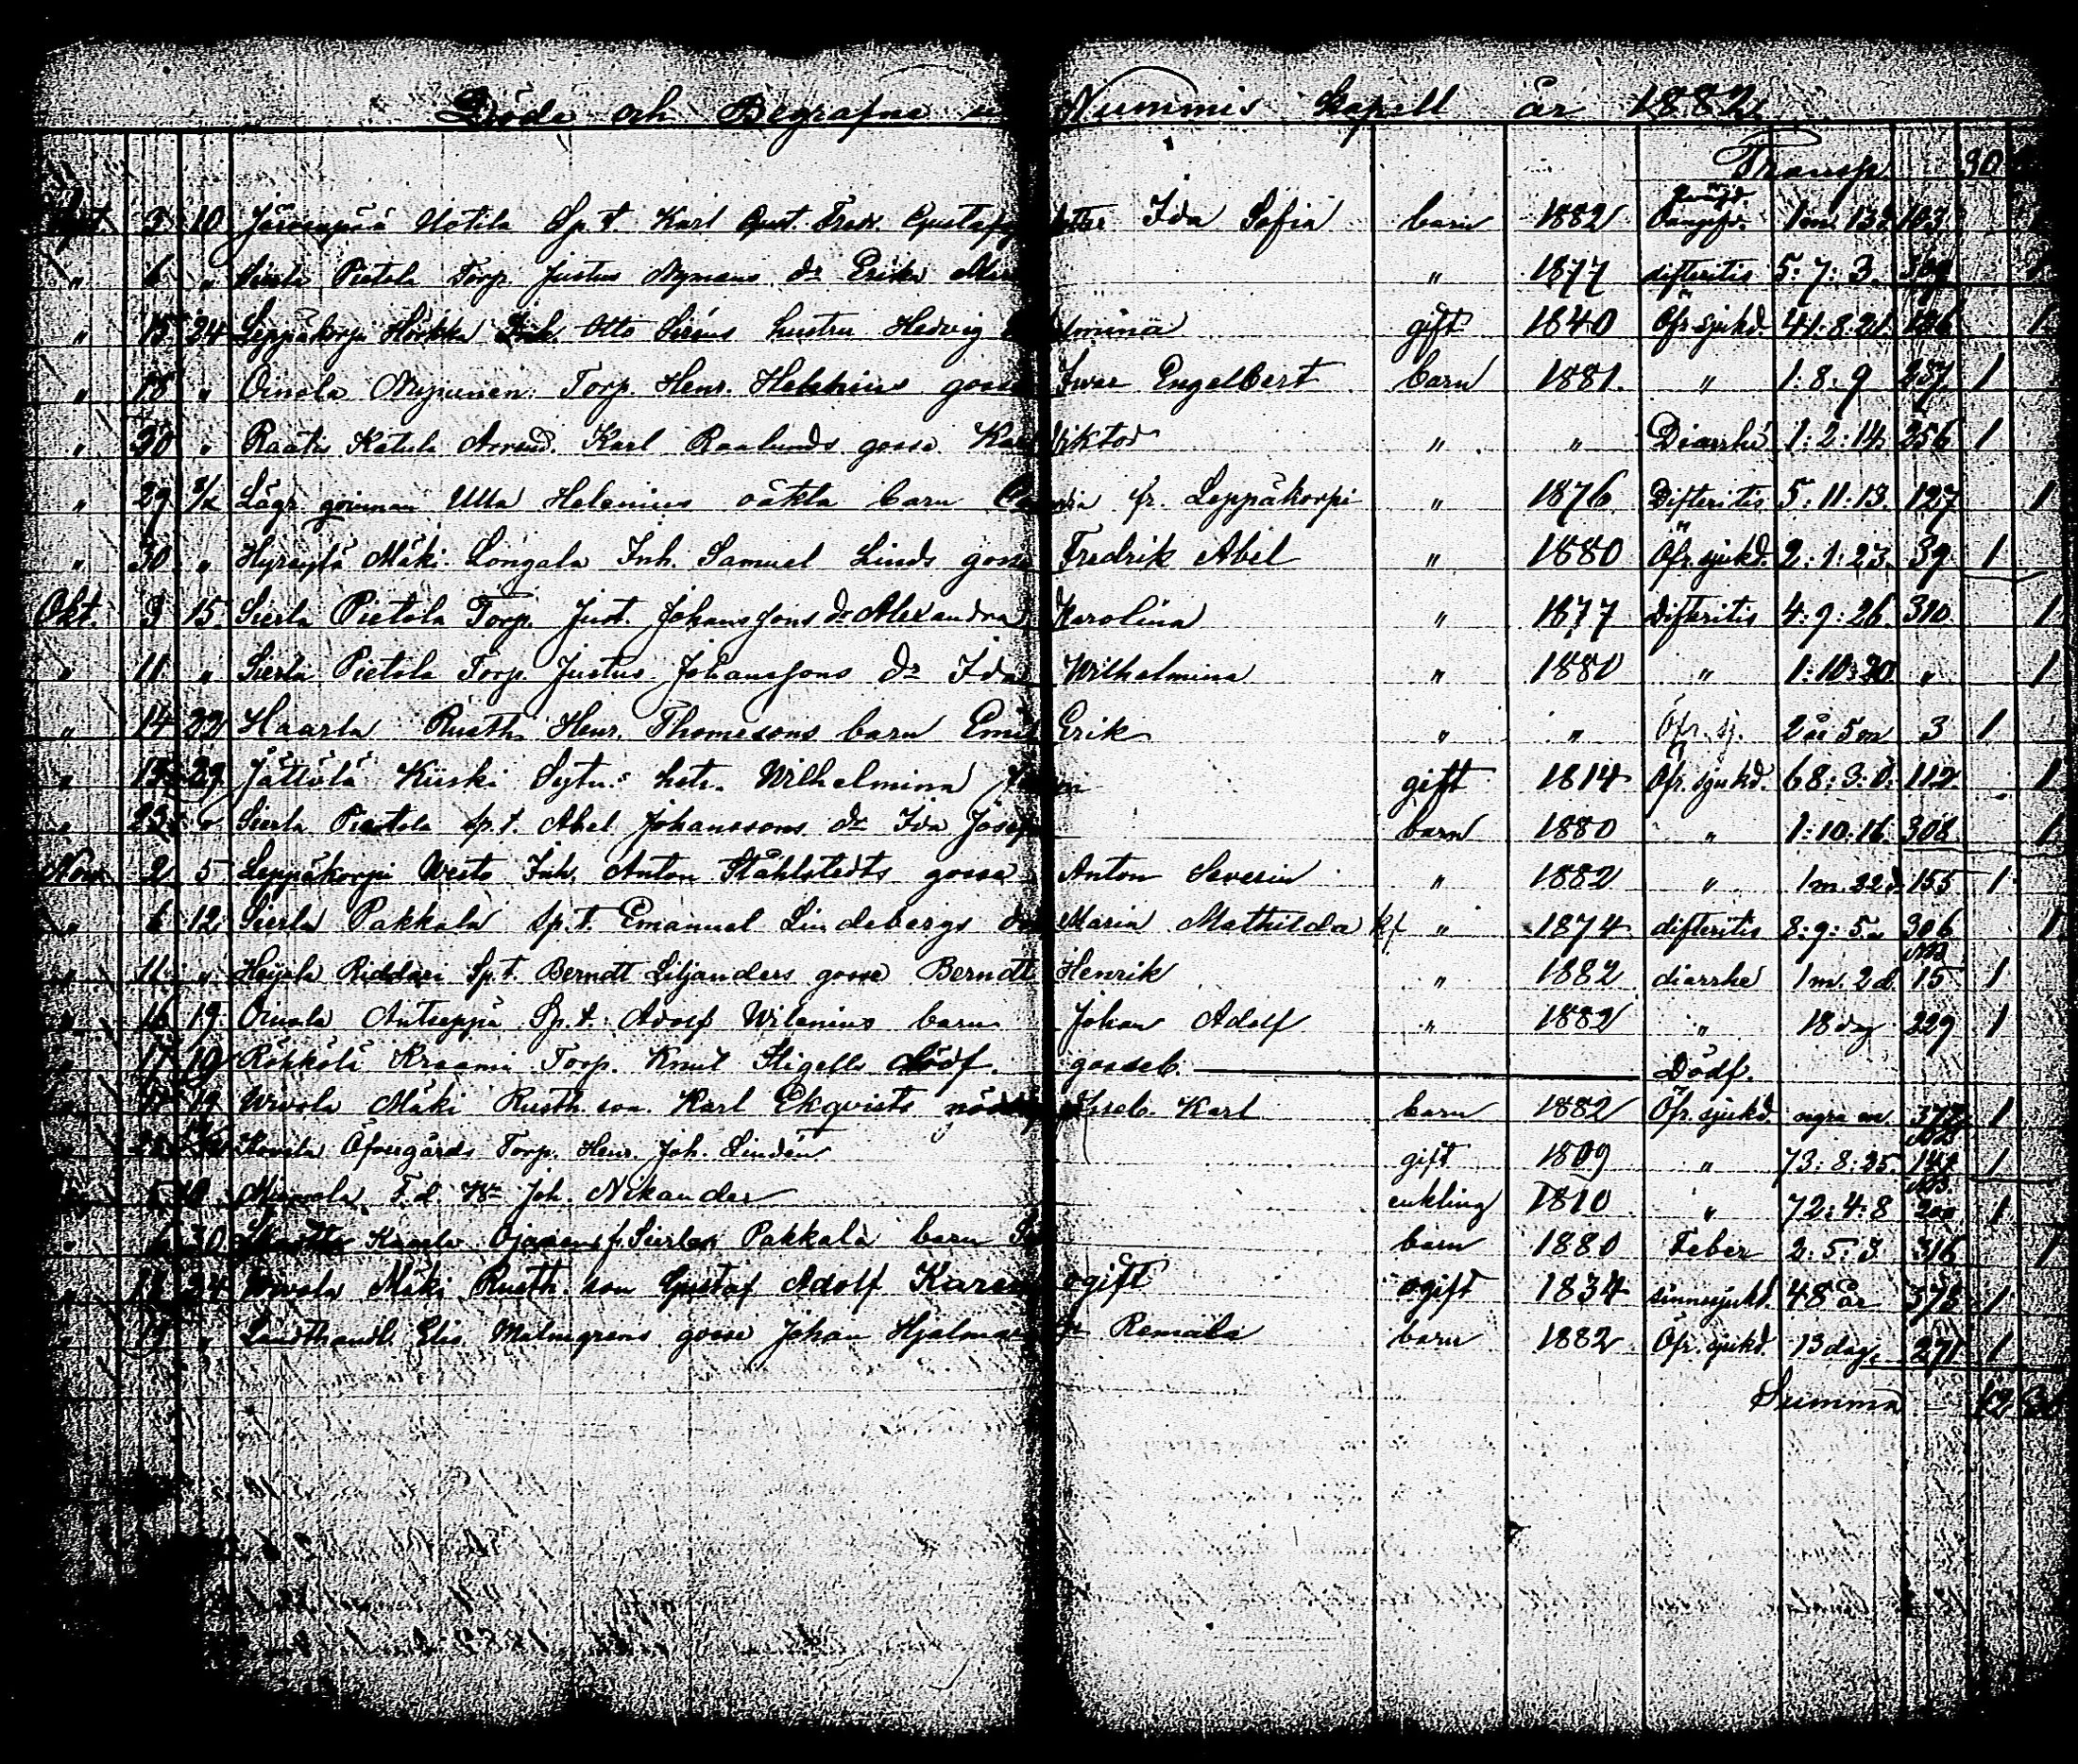 Döde och Begrafne i Nummis kapell år 1882.
Transp. 30
3 10 Järvenpää Uotila Sp.t. Karl Gust. Fredr. Gustafs dotter Ida Sofia barn 1882 1 m. 13 d. 103
" 6 " Sierla Pietola Torp. Justus Nymans dr Erika " 1877 difteritis 5:7:3. 309 1
" 15 24 Leppäkorpi Hörkkä Inh. Otto Siréns hustru Hedvig gift 1840 Öfr. sjukd. 41.8.21. 136 1
" 18 " Oinola Nupunen Torp. Henr. Helenius gosse Ivar Engelbert barn 1881. " 1:8:9 237 1
" 20 " Raatti Katula Arrend. Karl Raalunds gosse Karl Viktor " " Diarrhé 1:2:14. 256 1
" 29 " Lägr. qvinnan Ulla Helenius oäkta barn fr. Leppäkorpi " 1876 Difteritis 5:11:13. 127 1
" 30 " Hyrsylä Mäki Longala Inh. Samuel Linds gosse Fredrik Abel " 1880 Öfr. sjukd. 2:1:23. 39 1
Okt. 3 15. Sierla Pietola Torp. Just. Johanssons dr Alexandra Karolina " 1877 Difteritis 4:9:26. 310 1
" 11 " Sierla Pietola Torp. Justus Johanssons dr Ida Wilhelmina " 1880 " 1:10:20 " 1
" 14 22 Haarla Rusth. Henr. Thomssons barn Emil Erik " " Öfr. sj. 2 år 5 m 3 1
" 29 Jättölä Kiiski Sytn. hstr. Wilhelmina gift 1814 Öfr. sjukd. 68:3:0. 112. 1
" 23 " Sierla Pietola Sp.t. Abel Johanssons dr Ida barn 1880 " 1:10:16. 308 1
Nov. 2 5 Leppäkorpi Westo Inh. Anton Ståhlstedts gosse Anton Severin " 1882 " 1 m. 22 d. 155 1
" 6 12 Sierla Pakkala Sp.t. Emanuel Lindebergs Maria Mathilda " 1874 difteritis 8:9:5. 306 1
" 11 " Heijala Riddari Sp.t. Berndt Liljanders gosse Berndt Henrik " 1882 diarrhe 1 m. 2 d. 15 1
" 16 19 Oinola Antseppä Sp.t. Adolf Wilenius barn Johan Adolf " 1882 " 18 dag 229 1
" 17 19 Röhkölä Kraami Torp. Knut Stigells dödf. gosseb. Dödf.
" 19 Wivola Mäki Rusth. son Karl Ekqvists gosseb. Karl barn 1882 Öfr. sjukd. 372 1
" Kovela Öfvergårds Torp. Henr. Joh. Lindén gift 1809 " 73:8:25. 147 1
F.d. Joh. Nikander enkling 1810 " 72:4:8 200 1
" 6 30 Kaarlo Ojanen fr. Sierla Pakkala barn barn 1880 Feber 2:5:3 316 1
" 24 Wivola Mäki Rusth. son Gustaf Adolf ogift ogift 1834 sinnessjukd. 48 år 373 1
" " Landthandl. Elis Malmgrens gosse Johan Hjalmar fr Remala barn 1882 Öfr. sjukd. 13 dag. 271 1
Summa 42